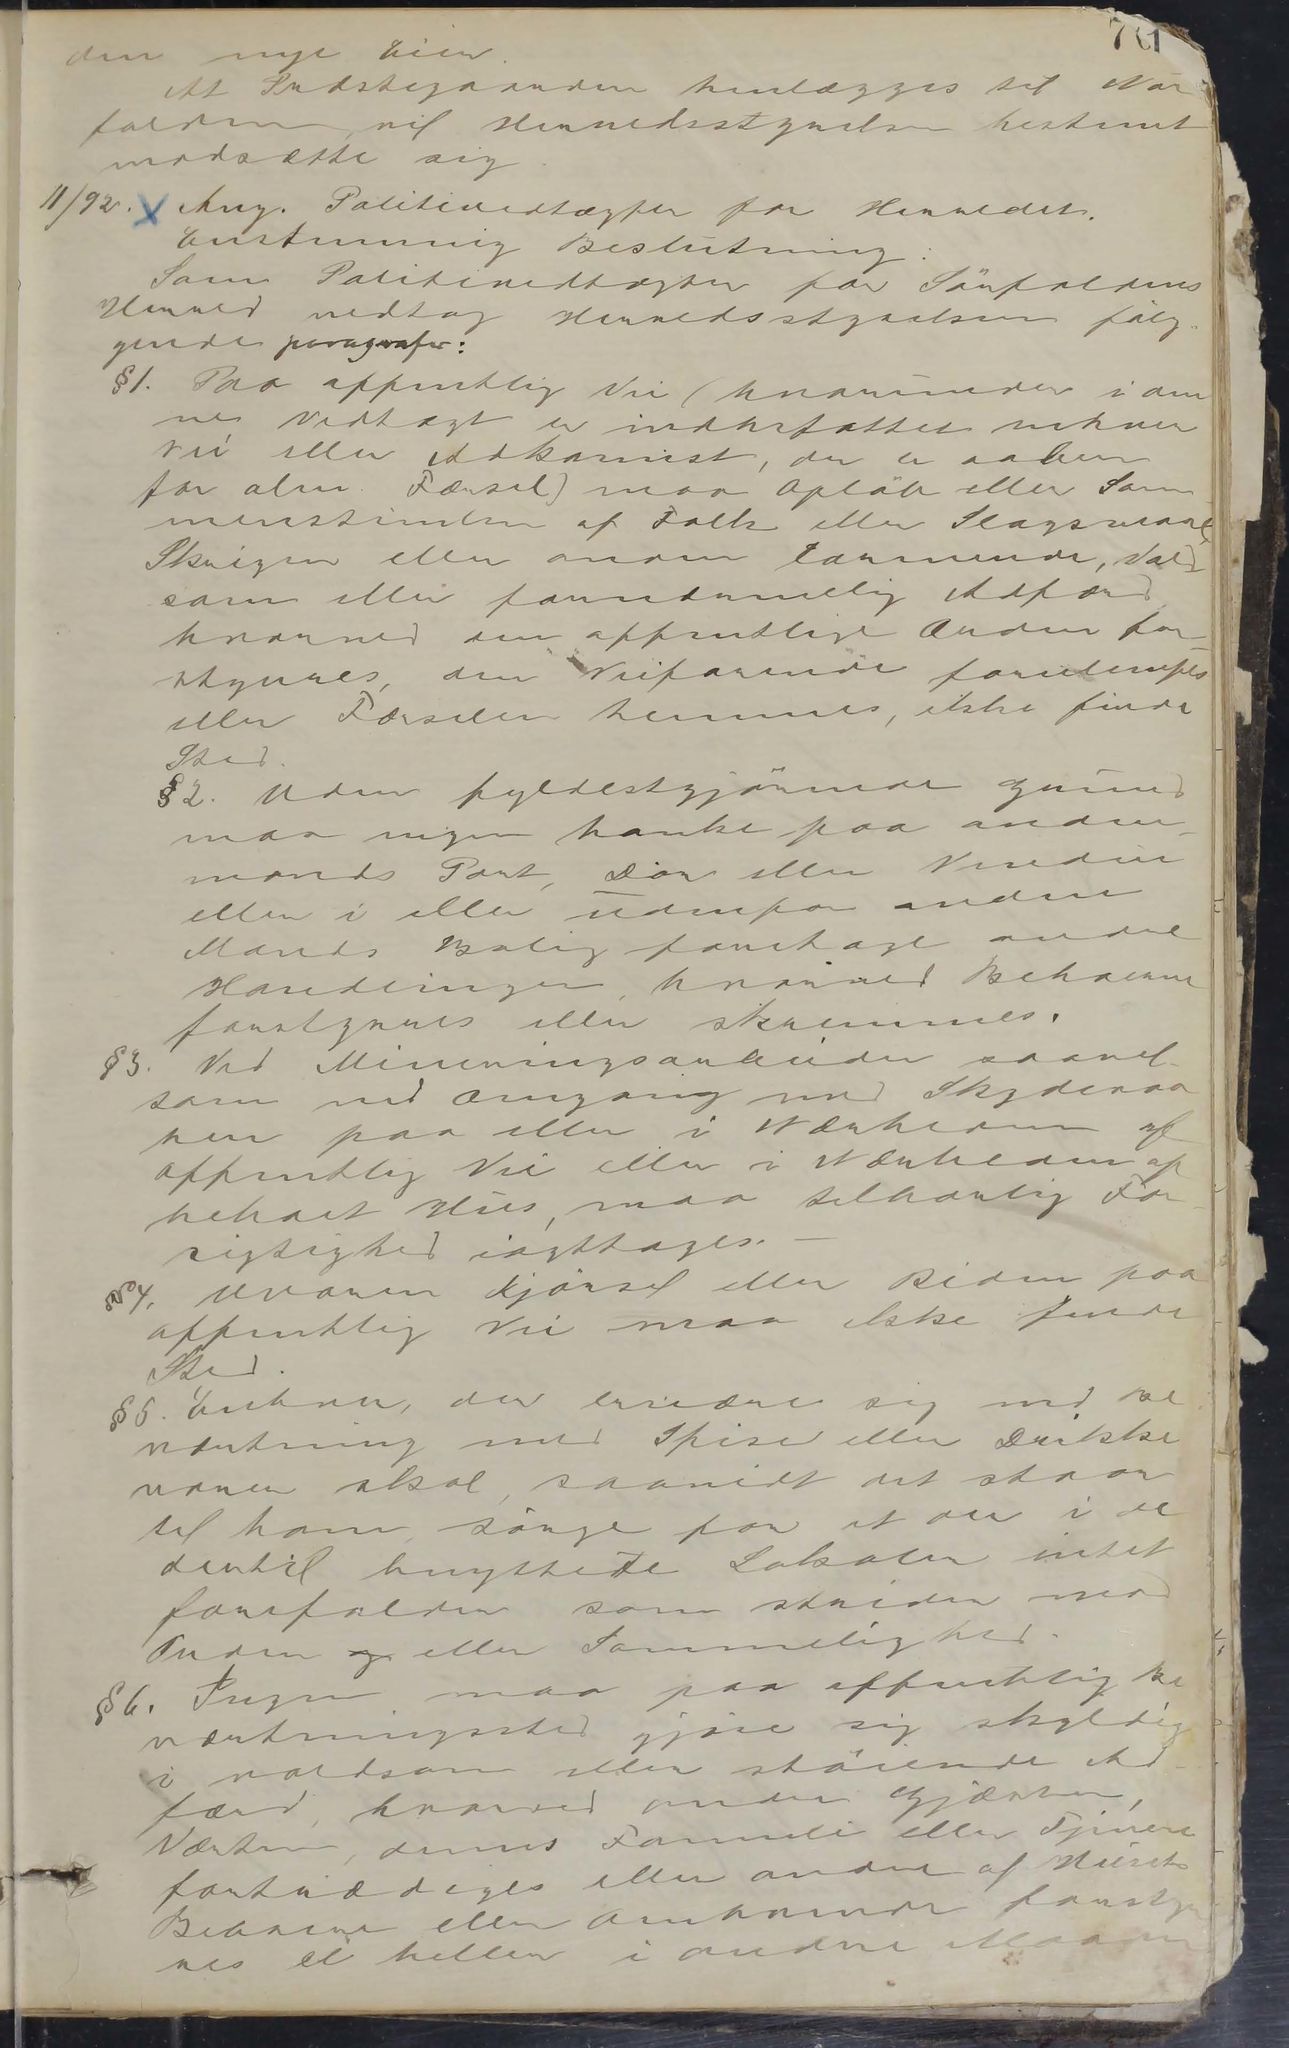 761
den nye Eier.
At Indstegaarden henlægges til Nor
folden vil Herredsstyrelsen bestemt
modsætte sig.
11/92. X Ang. Politivedtægter for Herredet.
Enstemmig Beslutning:
Som Politivedtægter for Sörfoldens
Herred vedtog Herredsstyrelsen fölg-
gende paragrafer:
§1. Paa offentlig Vei (hvorunder i den
ne Vedtægt er indbefattet enhver
vei eller Adkomst, der er aaben
for alm. Færsel) maa Opläb eller Sam
menstimlen af Folk eller Slagsmaal,
Skrigen eller anden larmende, vold
som eller fornærmelig Adfærd
hvorved den offentlige Orden for-
styrres, den Veifarende forulempes
eller Færselen hemmes, ikke finde
Sted.
§2. Uden fyldestgjörende Grund
maa ingen banke paa anden
mands Port, Dör eller Vindu
eller i eller udenfor anden
Mands Bolig foretage andre
Handlinger, hvorved Beboerne
forstyrres eller skræmmes.
§3. Ved Mineringsarbeider saavel
som ved Omgang med Skydevaa
ben paa eller i Nærheden af
offentlig Vei eller i Nærheden af
beboet Hus, maa tilbörlig For
sigtighed iagttages. —
§4. Uvoren Kjörsel eller Riden paa
offentlig Vei maa ikke finde
Sted.
§5. Enhver, der ernærer sig med Be
værtning med Spise eller Drikke
varer skal, saavidt det staar
til ham, sörge for at der i de
dertil knyttede Lokaler intet
forefalder som strider mod
Orden og eller Sømmelighed.
§6. Ingen maa paa offentlig Be
værtningssted gjöre sig skyldig
i voldsom eller störende Ad
færd, hvorved andre Gjæster,
Værten, dennes Familie eller Tjenere
fortrædiges eller andre af Husets
Beboere eller Omboende forstyr
res ei heller i andre Maader